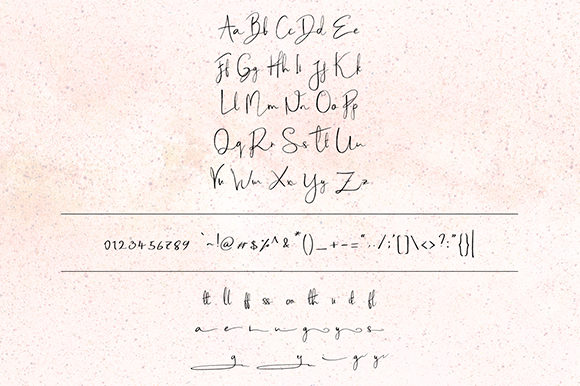 Aa Bb Cc Dd Ee
Ff Gg Hh Ii Jj Kk
Ll Mm Nn Oo Pp
Qq Rr Ss Tt Uu
Vv Ww Xx Yy Zz
0123456789 `~!@#$%^&*()_+-=“,./;'[]\<>?:"{}|
tt ll ff ss oo th
a e r g y s
g y g y